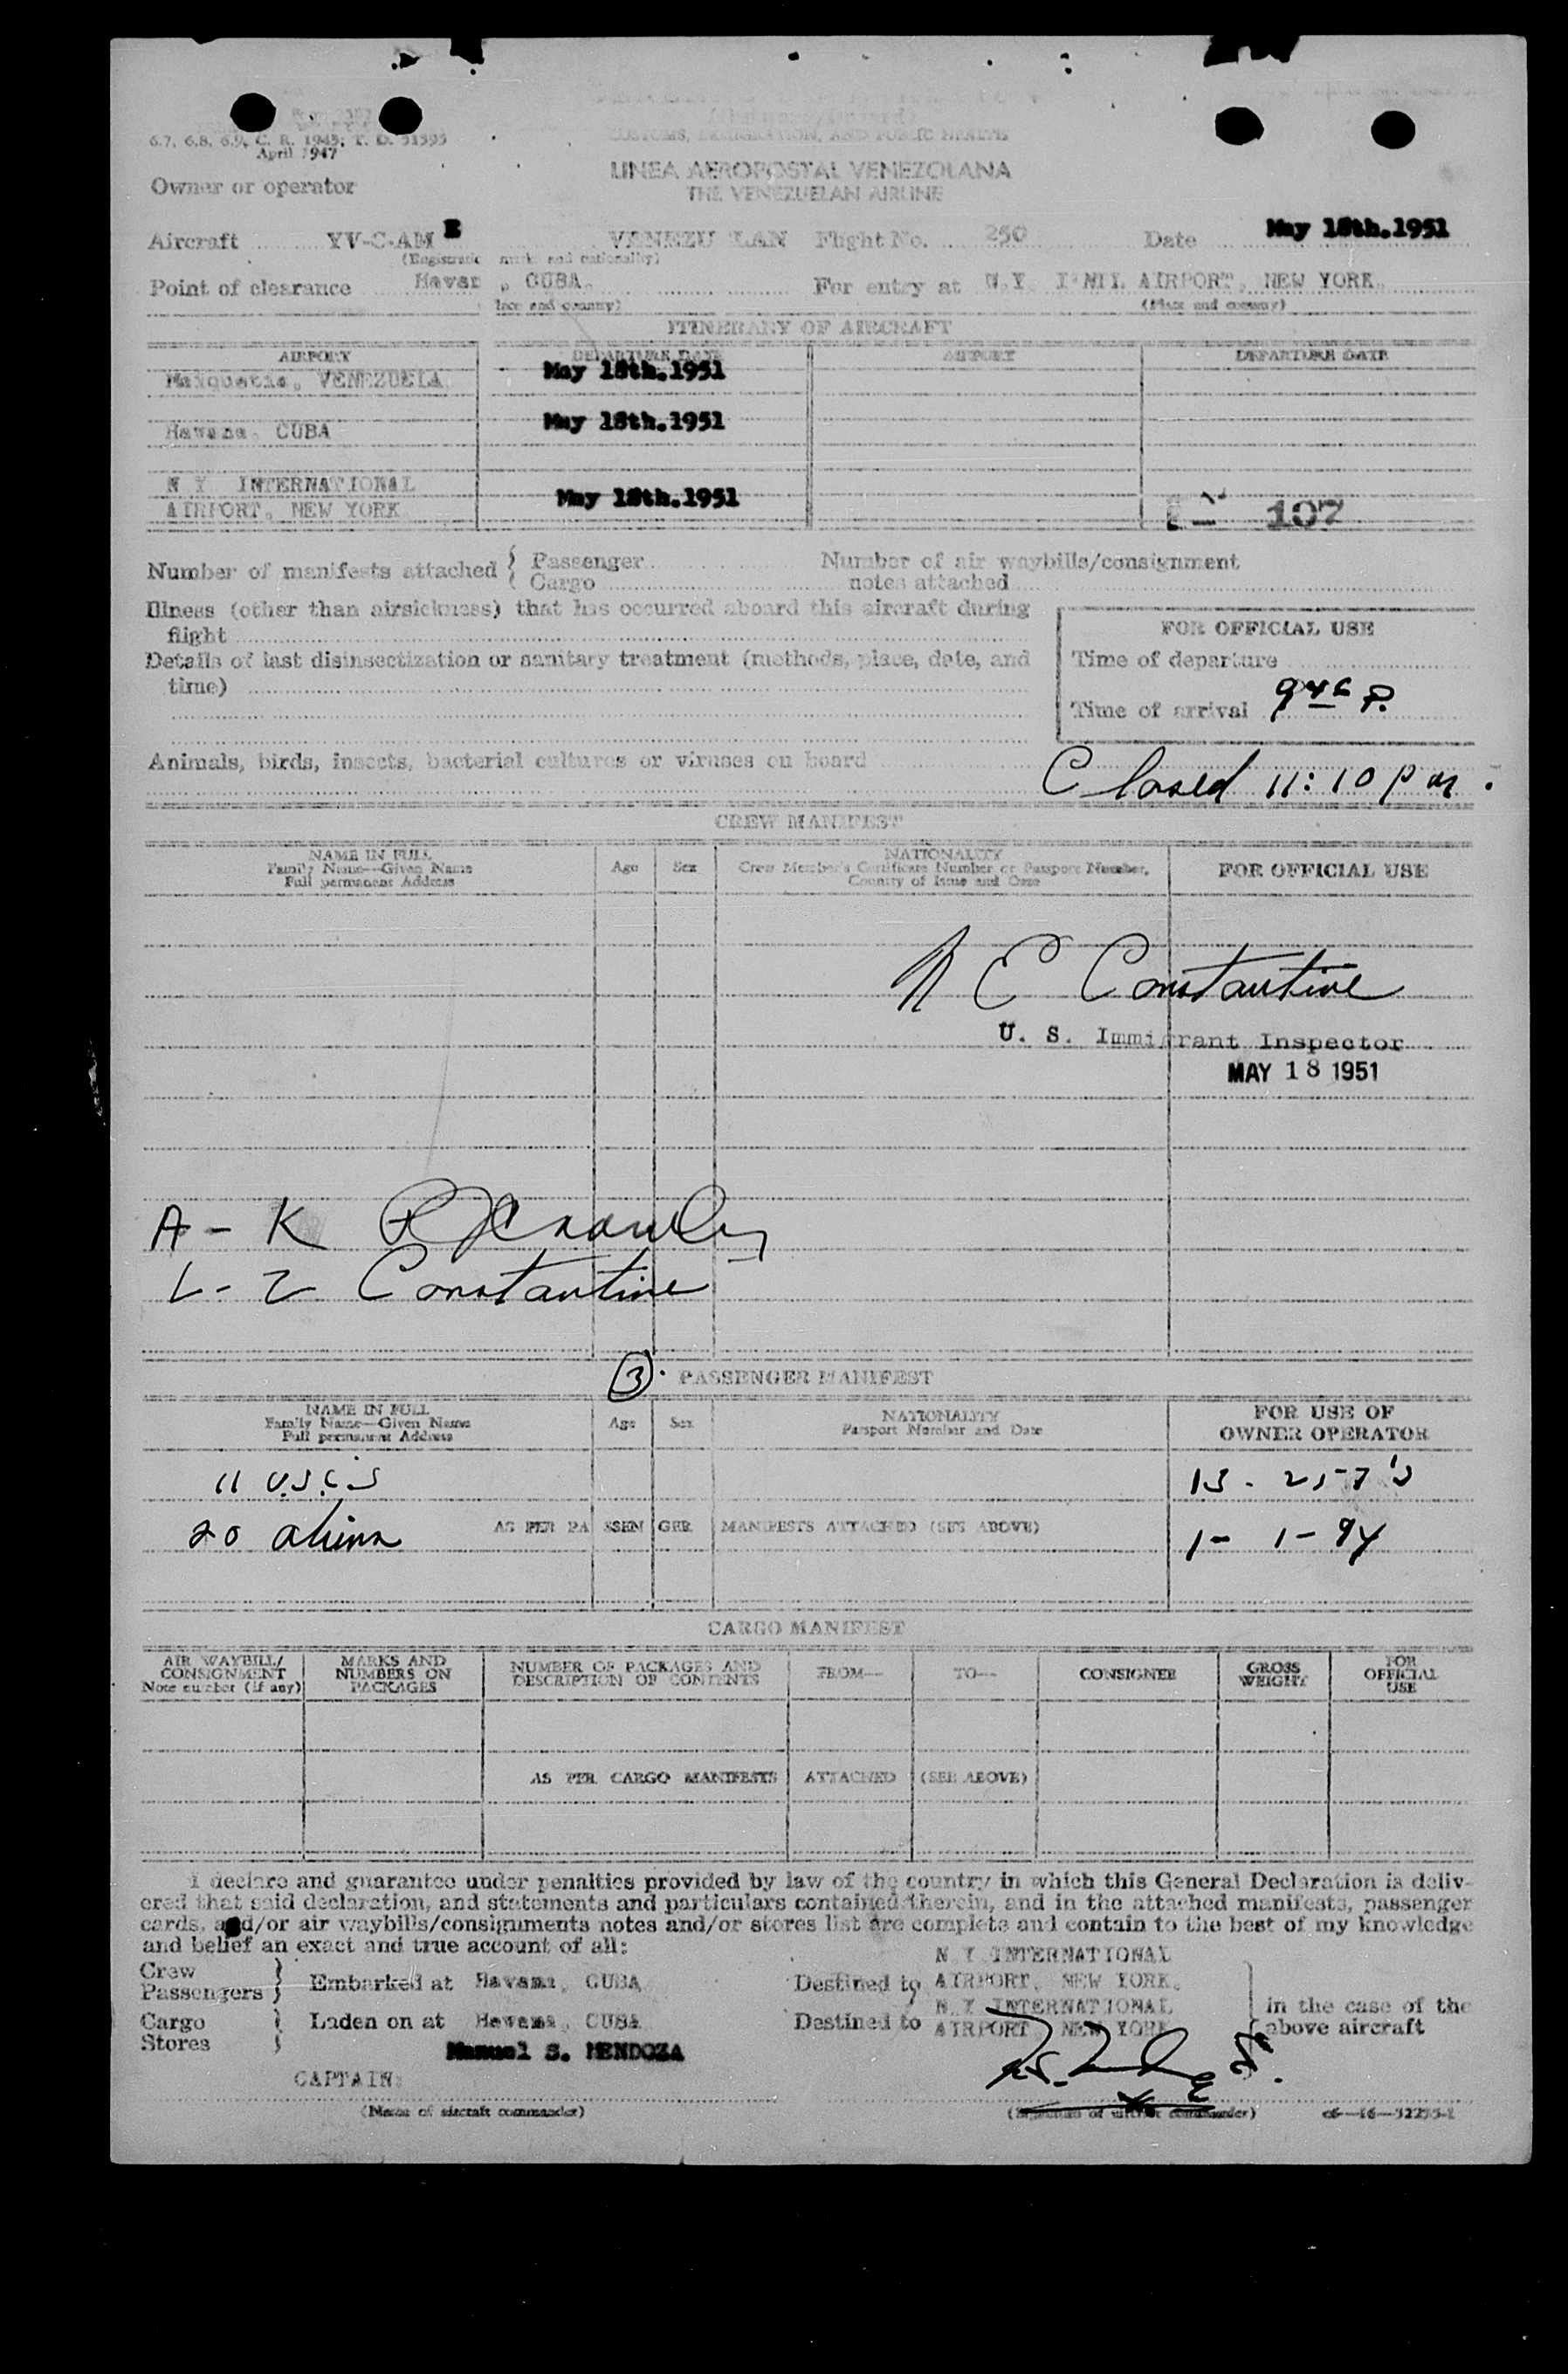 6.7, 6.8, 6.9, C. R. 1943; T. D. 51595
April 1947
CUSTOMS, IMMIGRATION, AND PUBLIC HEALTH
LINEA AEROPOSTAL VENEZOLANA
THE VENEZUELAN AIRLINE
Owner or operator
Aircraft YV-C-AM E VENEZU LAN Flight No. 250 Date May 18th.1951
(Registratio mark and nationality)
Point of clearance Havan , CUBA. For entry at N.Y. I'NTL AIRPORT, NEW YORK.
lace and country) (Place and country)
ITINERARY OF AIRCRAFT
AIRPORT DEPARTURE DATE AIRPORT DEPARTURE DATE
Maiquetia, VENEZUELA May 18th.1951
Havana, CUBA May 18th.1951
N Y INTERNATIONAL
AIRPORT, NEW YORK May 18th.1951
107
Number of manifests attached { Passenger Number of air waybills/consignment
Cargo notes attached
Illness (other than airsickness) that has occurred aboard this aircraft during
flight
FOR OFFICIAL USE
Details of last disinsectization or sanitary treatment (methods, place, date, and
time)
Time of departure
Time of arrival P.
Animals, birds, insects, bacterial cultures or viruses on board
Closed 11:10 pm.
CREW MANIFEST
NAME IN FULL
Family Name—Given Name
Full permanent Address
Age Sex
NATIONALITY
Crew Member's Certificate Number or Passport Number,
Country of Issue and Date
FOR OFFICIAL USE
N E Constantine
U. S. Immigrant Inspector
MAY 18 1951
A - K
L - Z Constantine
3 PASSENGER MANIFEST
NAME IN FULL
Family Name—Given Name
Full permanent Address
Age Sex
NATIONALITY
Passport Number and Date
FOR USE OF
OWNER OPERATOR
11 U.S.C.S 13 - 257's
20 aliens AS PER PA SSEN GER MANIFESTS ATTACHED (SEE ABOVE) 1 - 1-94
CARGO MANIFEST
AIR WAYBILL/
CONSIGNMENT
Note number (if any)
MARKS AND
NUMBERS ON
PACKAGES
NUMBER OF PACKAGES AND
DESCRIPTION OF CONTENTS
FROM—
TO—
CONSIGNEE
GROSS
WEIGHT
FOR
OFFICIAL
USE
AS PER CARGO MANIFESTS ATTACHED (SEE ABOVE)
I declare and guarantee under penalties provided by law of the country in which this General Declaration is deliv-
ered that said declaration, and statements and particulars contained therein, and in the attached manifests, passenger
cards, and/or air waybills/consignments notes and/or stores list are complete and contain to the best of my knowledge
and belief an exact and true account of all:
Crew
Passengers } Embarked at Havana, CUBA Destined to N Y INTERNATIONAL AIRPORT, NEW YORK.
Cargo
Stores } Laden on at Havana, CUBA Destined to N.Y INTERNATIONAL AIRPORT NEW YORK
in the case of the
above aircraft
Manuel S. MENDOZA
CAPTAIN:
(Name of aircraft commander) (Signature of aircraft commander)